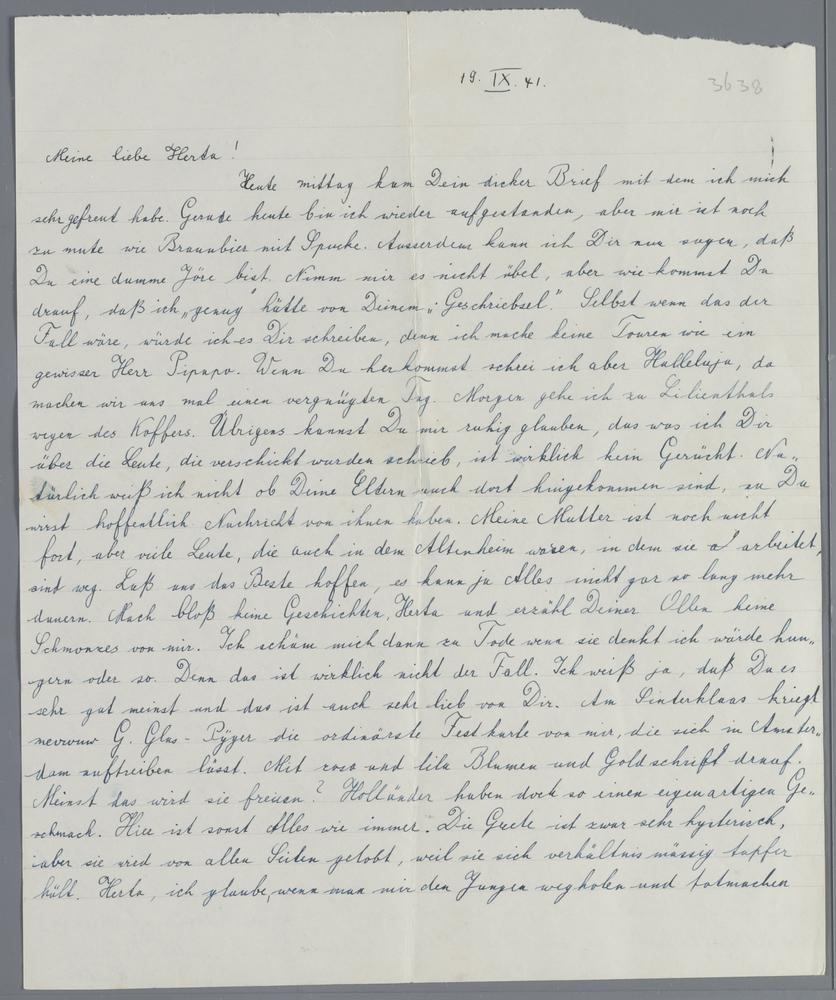 19. IX. 41.
3638
Meine liebe Herta!
Heute mittag kam Dein dicker Brief mit dem ich mich
sehr gefreut habe. Gerade heute bin ich wieder aufgestanden, aber mir ist noch
zu mute wie Braunbier mit Spucke. Ausserdem kann ich Dir nur sagen, daß
Du eine dumme Jöre bist. Nimm mir es nicht übel, aber wie kommst Du
drauf, daß ich „genug" hätte von Deinem „Geschriebsel". Selbst wenn das der
Fall wäre, würde ich es Dir schreiben, denn ich mache keine Touren wie ein
gewisser Herr Pipapo. Wenn Du herkommst schrei ich aber Halleluja, da
machen wir uns mal einen vergnügten Tag. Morgen gehe ich zu Lilienthals
wegen des Koffers. Übrigens kannst Du mir ruhig glauben, das was ich Dir
über die Leute, die verschickt wurden schrieb, ist wirklich kein Gerücht. Na„
türlich weiß ich nicht ob Deine Eltern auch dort hingekommen sind, na Du
wirst hoffentlich Nachricht von ihnen haben. Meine Mutter ist noch nicht
fort, aber viele Leute, die auch in dem Altenheim waren, in dem sie arbeitet,
sind weg. Laß uns das Beste hoffen, es kann ja Alles nicht gar so lang mehr
dauern. Mach bloß keine Geschichten, Herta und erzähl Deiner Ollen keine
Schmonzes von mir. Ich schäm mich dann zu Tode wenn sie denkt ich würde hun„
gern oder so. Denn das ist wirklich nicht der Fall. Ich weiß ja, daß Du es
sehr gut meinst und das ist auch sehr lieb von Dir. Am Sinterklaas kriegt
mevrouw G. Glas-Pÿzer die ordinärste Festkarte von mir, die sich in Amster„
dam auftreiben lässt. Mit rosa und lila Blumen und Goldschrift drauf.
Meinst das wird sie freuen? Holländer haben doch so einen eigenartigen Ge„
schmack. Hier ist sonst Alles wie immer. Die Grete ist zwar sehr hysterisch,
aber sie wird von allen Seiten gelobt, weil sie sich verhältnismässig tapfer
hält. Herta, ich glaube, wenn man mir den Jungen wegholen und totmachen